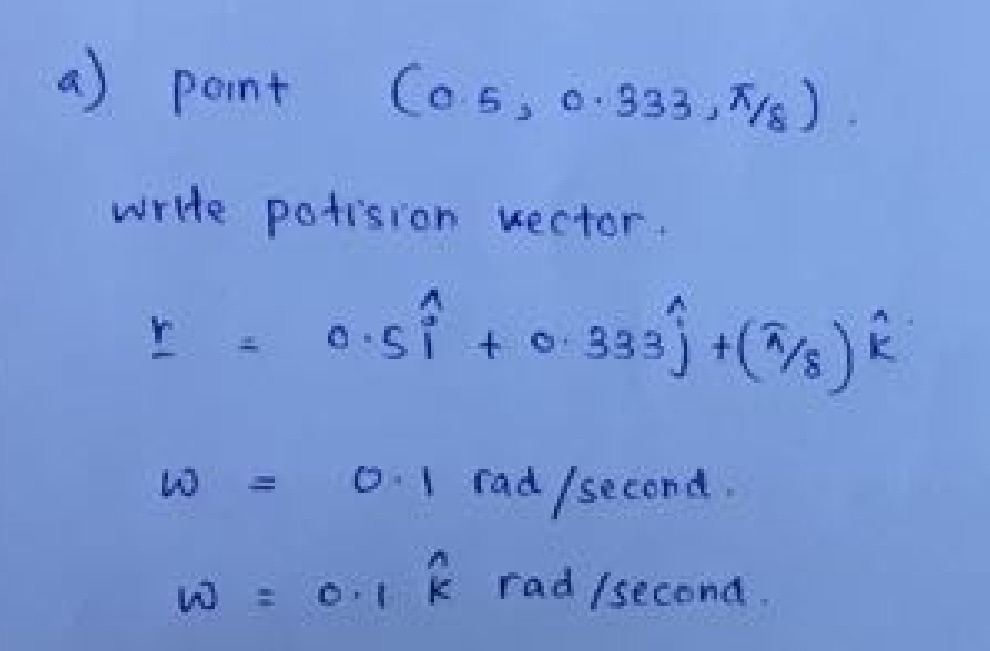 a) point (0.5, 0.333, π/8).
write potision vector.
r = 0.5 î + 0.333 ĵ + (π/8) k̂
w = 0.1 rad/second.
w = 0.1 k̂ rad/second.